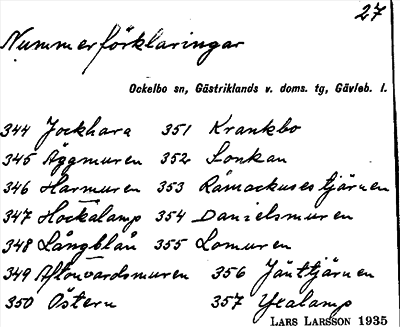 27
Nummerförklaringar
Ockelbo sn, Gästriklands v. doms. tg, Gävleb. l.
344 Jockhara 351 Krankbo
345 Äggmuren 352 Lonkan
346 Harmuren 353 Råmackusestjärnen
347 Hockalamp 354 Danielsmuren
348 Långblån 355 Lomuren
349 Aftonvardsmuren 356 Jäntjärnen
350 Östern 357 Yxalamp
LARS LARSSON 1935